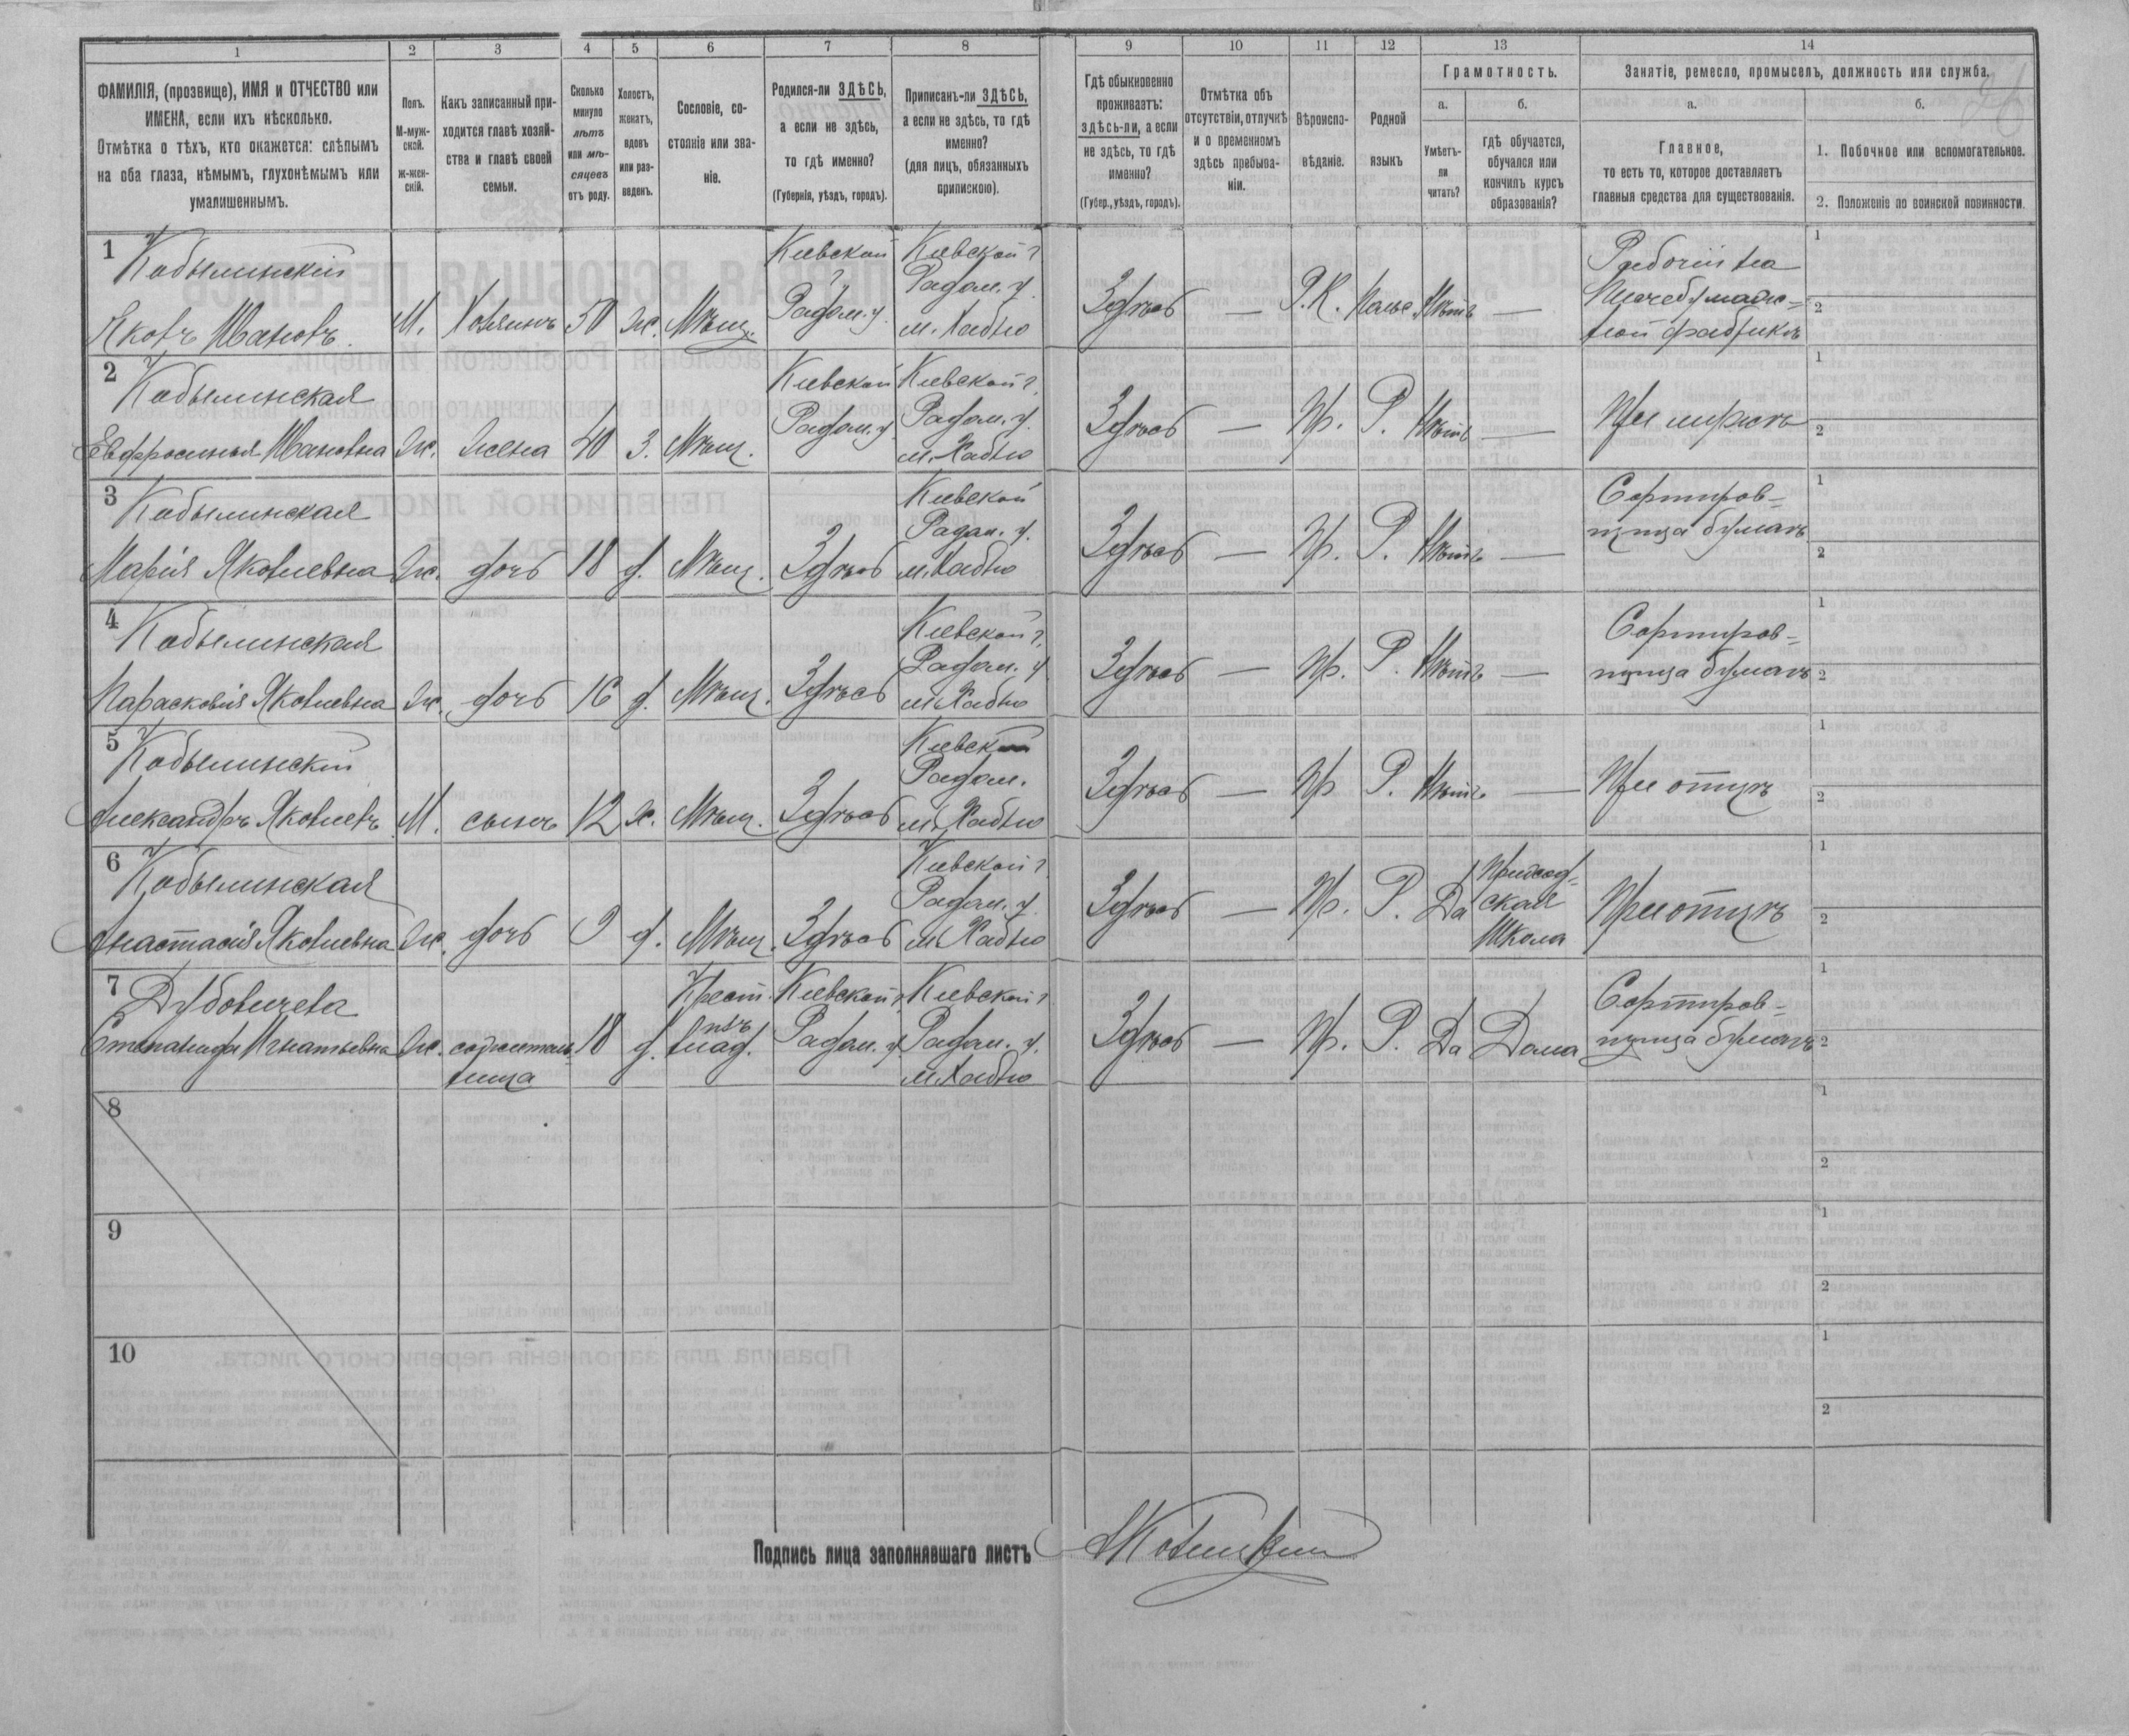 1 2 3 4 5 6 7 8 9 10 11 12 13 14
ФАМИЛІЯ, (прозвище), ИМЯ и ОТЧЕСТВО или
ИМЕНА, если ихъ нѣсколько.
Отмѣтка о тѣхъ, кто окажется: слѣпымъ
на оба глаза, нѣмымъ, глухонѣмымъ или
умалишеннымъ.
Полъ.
М-муж-
ской.
Ж-жен-
скій.
Какъ записанный при-
ходится главѣ хозяй-
ства и главѣ своей
семьи.
Сколько
минуло
лѣтъ
или мѣ-
сяцевъ
отъ роду.
Холостъ,
женатъ,
вдовъ
или раз-
веденъ.
Сословіе, со-
стояніе или зва-
ніе.
Родился-ли ЗДѢСЬ,
а если не здѣсь,
то гдѣ именно?
(Губернія, уѣздъ, городъ).
Приписанъ-ли ЗДѢСЬ,
а если не здѣсь, то гдѣ
именно?
(для лицъ, обязанныхъ
припискою).
Гдѣ обыкновенно
проживаетъ:
здѣсь-ли, а если
не здѣсь, то гдѣ
именно?
(Губер., уѣздъ, городъ).
Отмѣтка объ
отсутствіи, отлучкѣ
и о временномъ
здѣсь пребыва-
ніи.
Вѣроиспо-
вѣданіе.
Родной
языкъ
Грамотность.
а.
Умѣетъ-
ли
читать?
б.
гдѣ обучается,
обучался или
кончилъ курсъ
образованія?
Занятіе, ремесло, промыселъ, должность или служба.
а.
Главное,
то есть то, которое доставляетъ
главныя средства для существованія.
б.
1. Побочное или вспомогательное.
2. Положеніе по воинской повинности.
1 Кобылинскій Кіевской Кіевской г. Рабочій на 1
Радом. у. Писчебумаж-
Яковъ Ивановъ М. Хозяинъ 50 ж. Мѣщ. Радом. у. м. Хабно Здѣсь — Р.К. Польс. Нѣтъ — ной фабрикѣ 2
2 Кобылинская Кіевской Кіевской г. 1
Евфросинья Ивановна Ж. жена 40 З. Мѣщ. Радом. у. Радом. у. Здѣсь — Пр. Р. Нѣтъ — При мужѣ 2
м. Хабно
3 Кобылинская Кіевской Сортиров- 1
Радом. у.
Марія Яковлевна Ж. дочь 18 д. Мѣщ. Здѣсь м. Хабно Здѣсь — Пр. Р. Нѣтъ — щица бумагъ 2
4 Кобылинская Кіевской г. Сортиров- 1
Радом. у
Парасковія Яковлевна Ж. дочь 16 д. Мѣщ. Здѣсь м. Хабно Здѣсь — Пр. Р. Нѣтъ — щица бумагъ 2
5 Кобылинскій Кіевской 1
Радом.
Александръ Яковлевъ М. сынъ 12 х. Мѣщ. Здѣсь м. Хабно Здѣсь — Пр Р. Нѣтъ — При отцѣ 2
6 Кобылинская Кіевской г. Приход- 1
Радом. у. ская
Анастасія Яковлевна Ж. дочь 9 д. Мѣщ. Здѣсь м. Хабно Здѣсь — Пр. Р. Да Школа При отцѣ 2
7 Дубовичева Крест. Кіевской г. Кіевской г. Сортиров- 1
Степанида Игнатьевна Ж. сожитель- 18 д. изъ влад. Радом. у Радом. у. Здѣсь — Пр. Р. Да Дома щица бумагъ 2
ница м. Хабно
8 1
2
9 1
2
10 1
2
Подпись лица заполнявшаго листъ